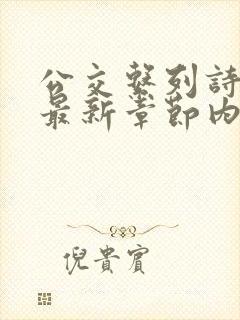 公交繫列詩
最新章節內
倪貴賓